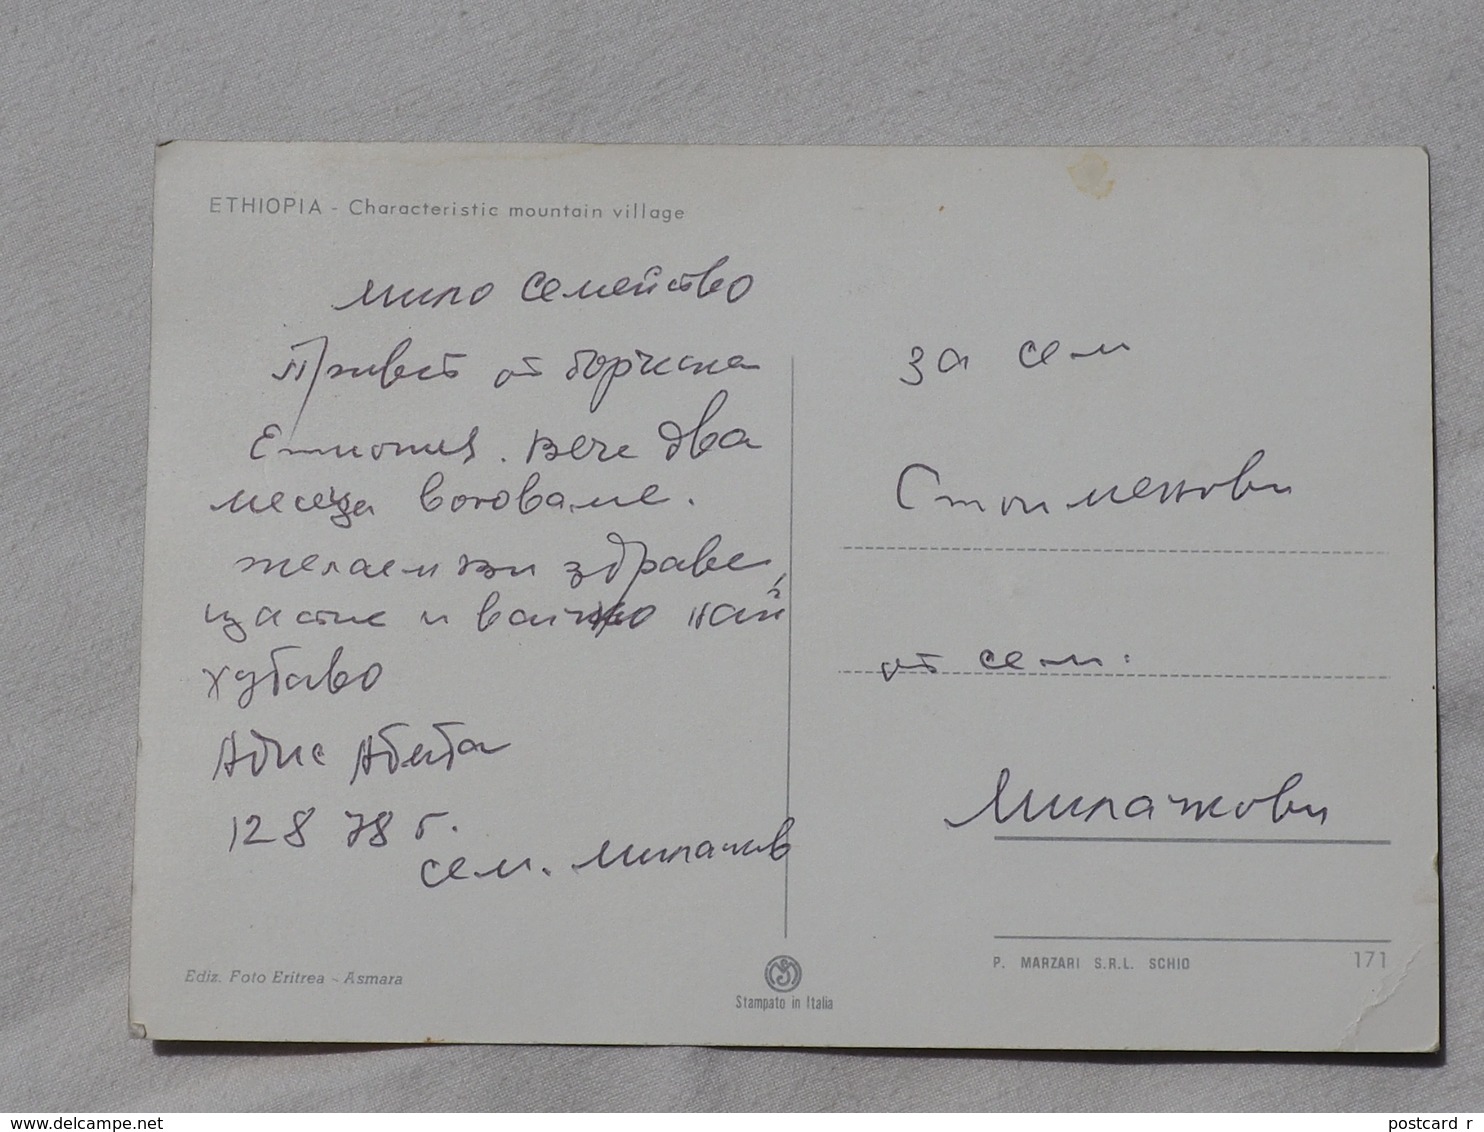 ETHIOPIA - Characteristic mountain village
мило семейство
Привет от борческа
Етиопия. Вече два
месеца воюваме.
желаем ви здраве,
щастие и всичко най
хубаво
Адис Абеба
12 8 78 г.
сем. Милачков
за сем
Стоименови
от сем:
Милачкови
Ediz. Foto Eritrea - Asmara
Stampato in Italia
P. MARZARI S.R.L. SCHIO 171
www.delcampe.net
postcard_r